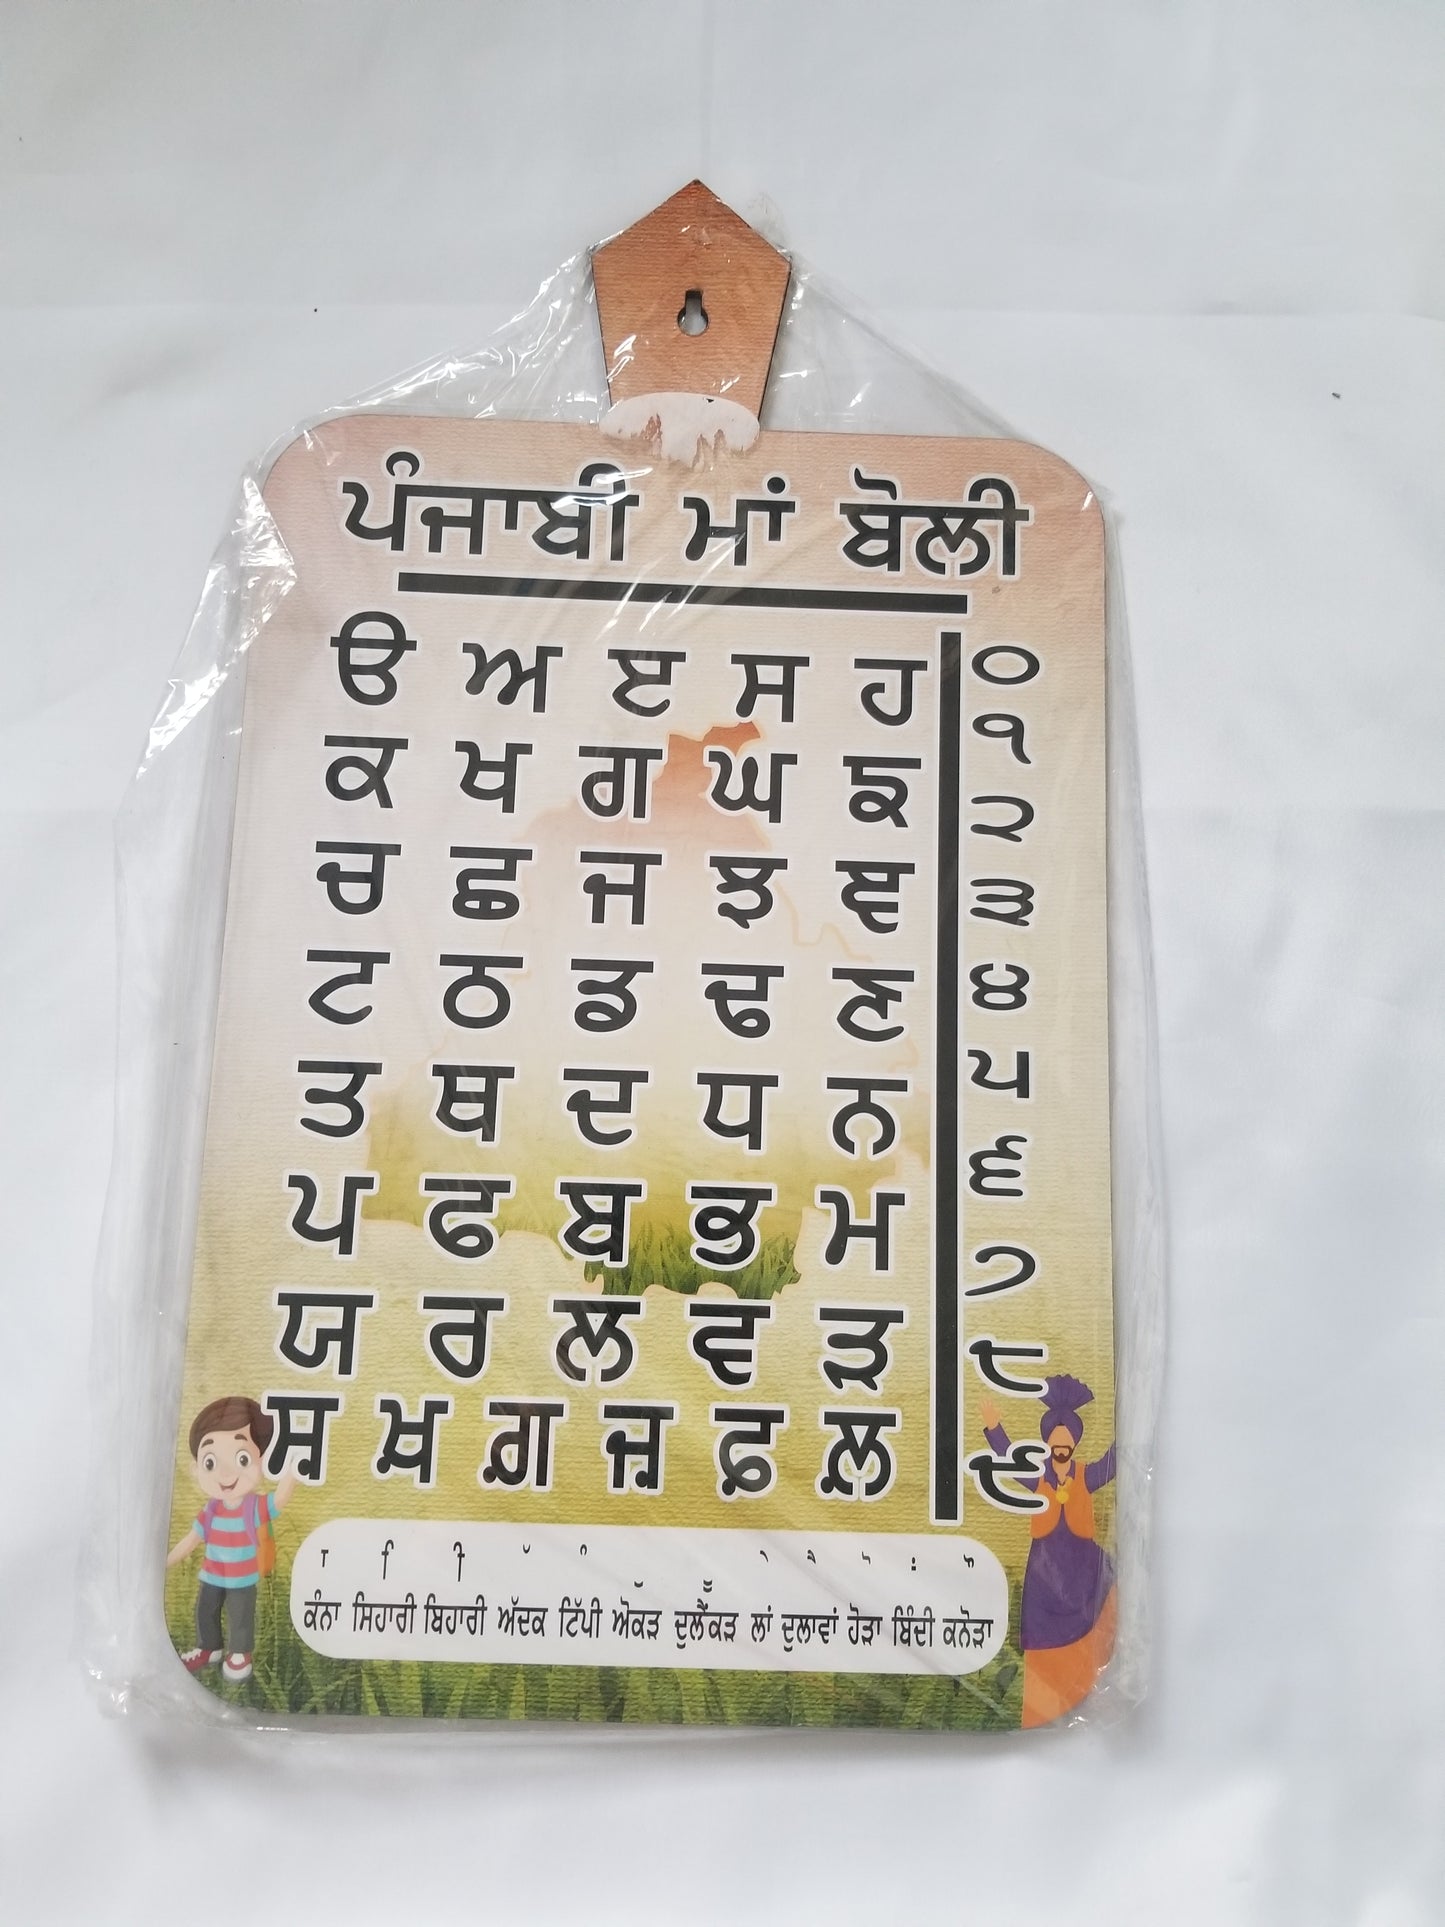 ਪੰਜਾਬੀ ਮਾਂ ਬੋਲੀ
ੳ ਅ ੲ ਸ ਹ
ਕ ਖ ਗ ਘ ਙ
ਚ ਛ ਜ ਝ ਞ
ਟ ਠ ਡ ਢ ਣ
ਤ ਥ ਦ ਧ ਨ
ਪ ਫ ਬ ਭ ਮ
ਯ ਰ ਲ ਵ ੜ
ਸ਼ ਖ਼ ਗ਼ ਜ਼ ਫ਼ ਲ਼
੦
੧
੨
੩
੪
੫
੬
੭
੮
੯
ਕੰਨਾ ਸਿਹਾਰੀ ਬਿਹਾਰੀ ਅੱਦਕ ਟਿੱਪੀ ਔਕੜ ਦੁਲੈਂਕੜ ਲਾਂ ਦੁਲਾਵਾਂ ਹੋੜਾ ਬਿੰਦੀ ਕਨੋੜਾ